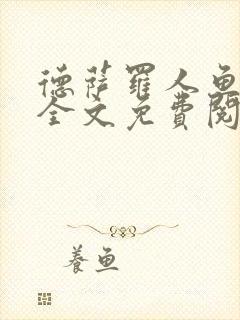 德萨罗人鱼
全文免费阅
养鱼